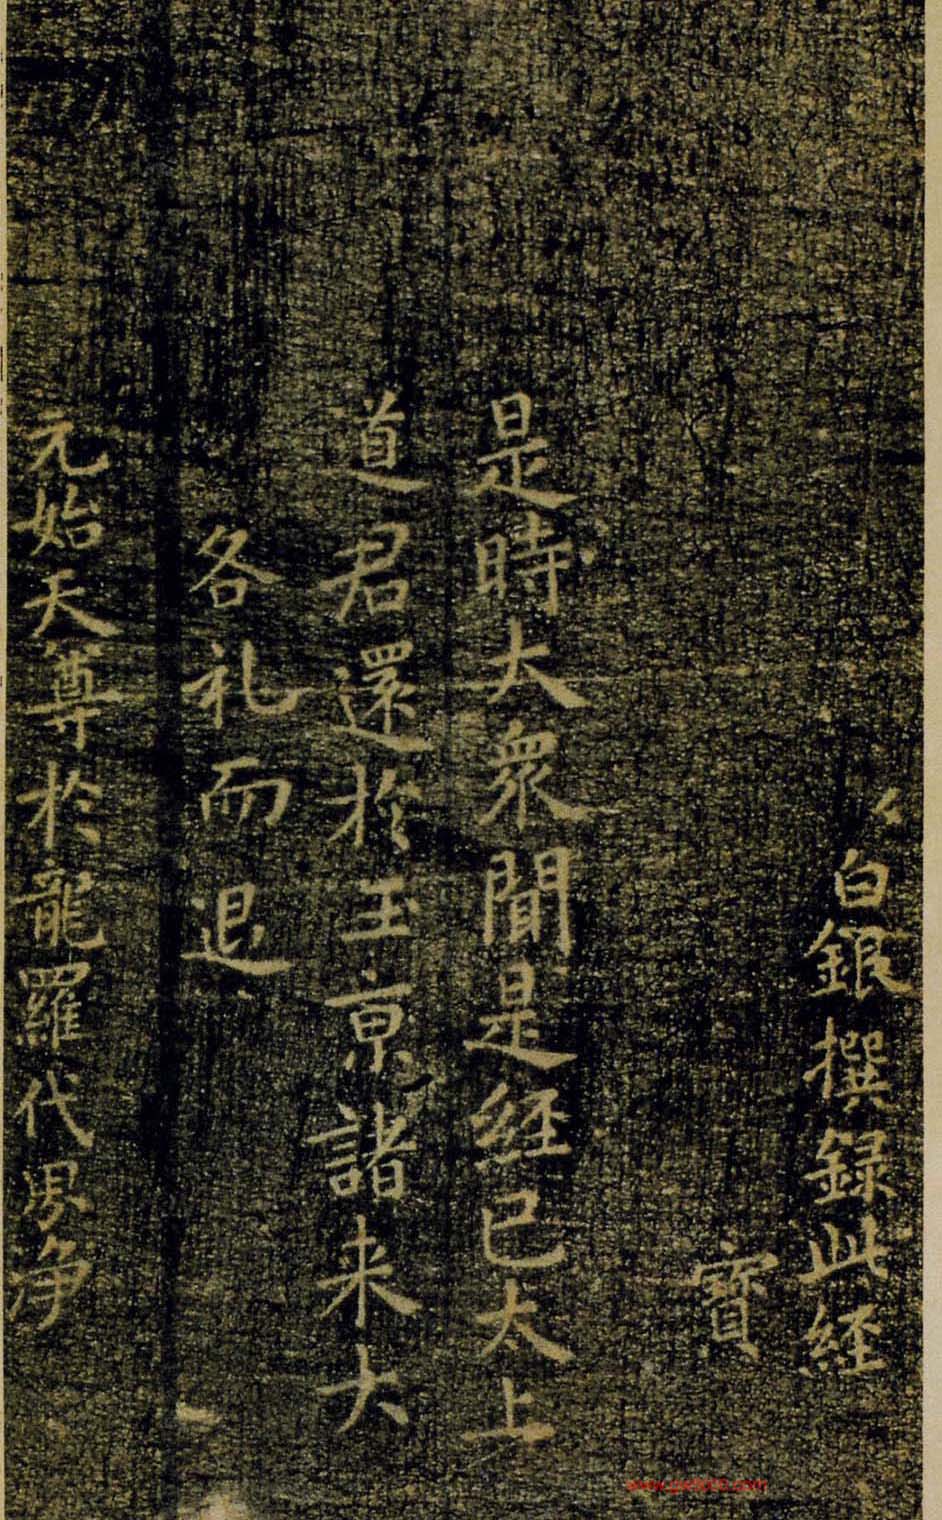 白銀撰録此經
寶
是時大衆聞是經已太上
道君還於玉京諸来大
各礼而退
元始天尊於龍羅代界净